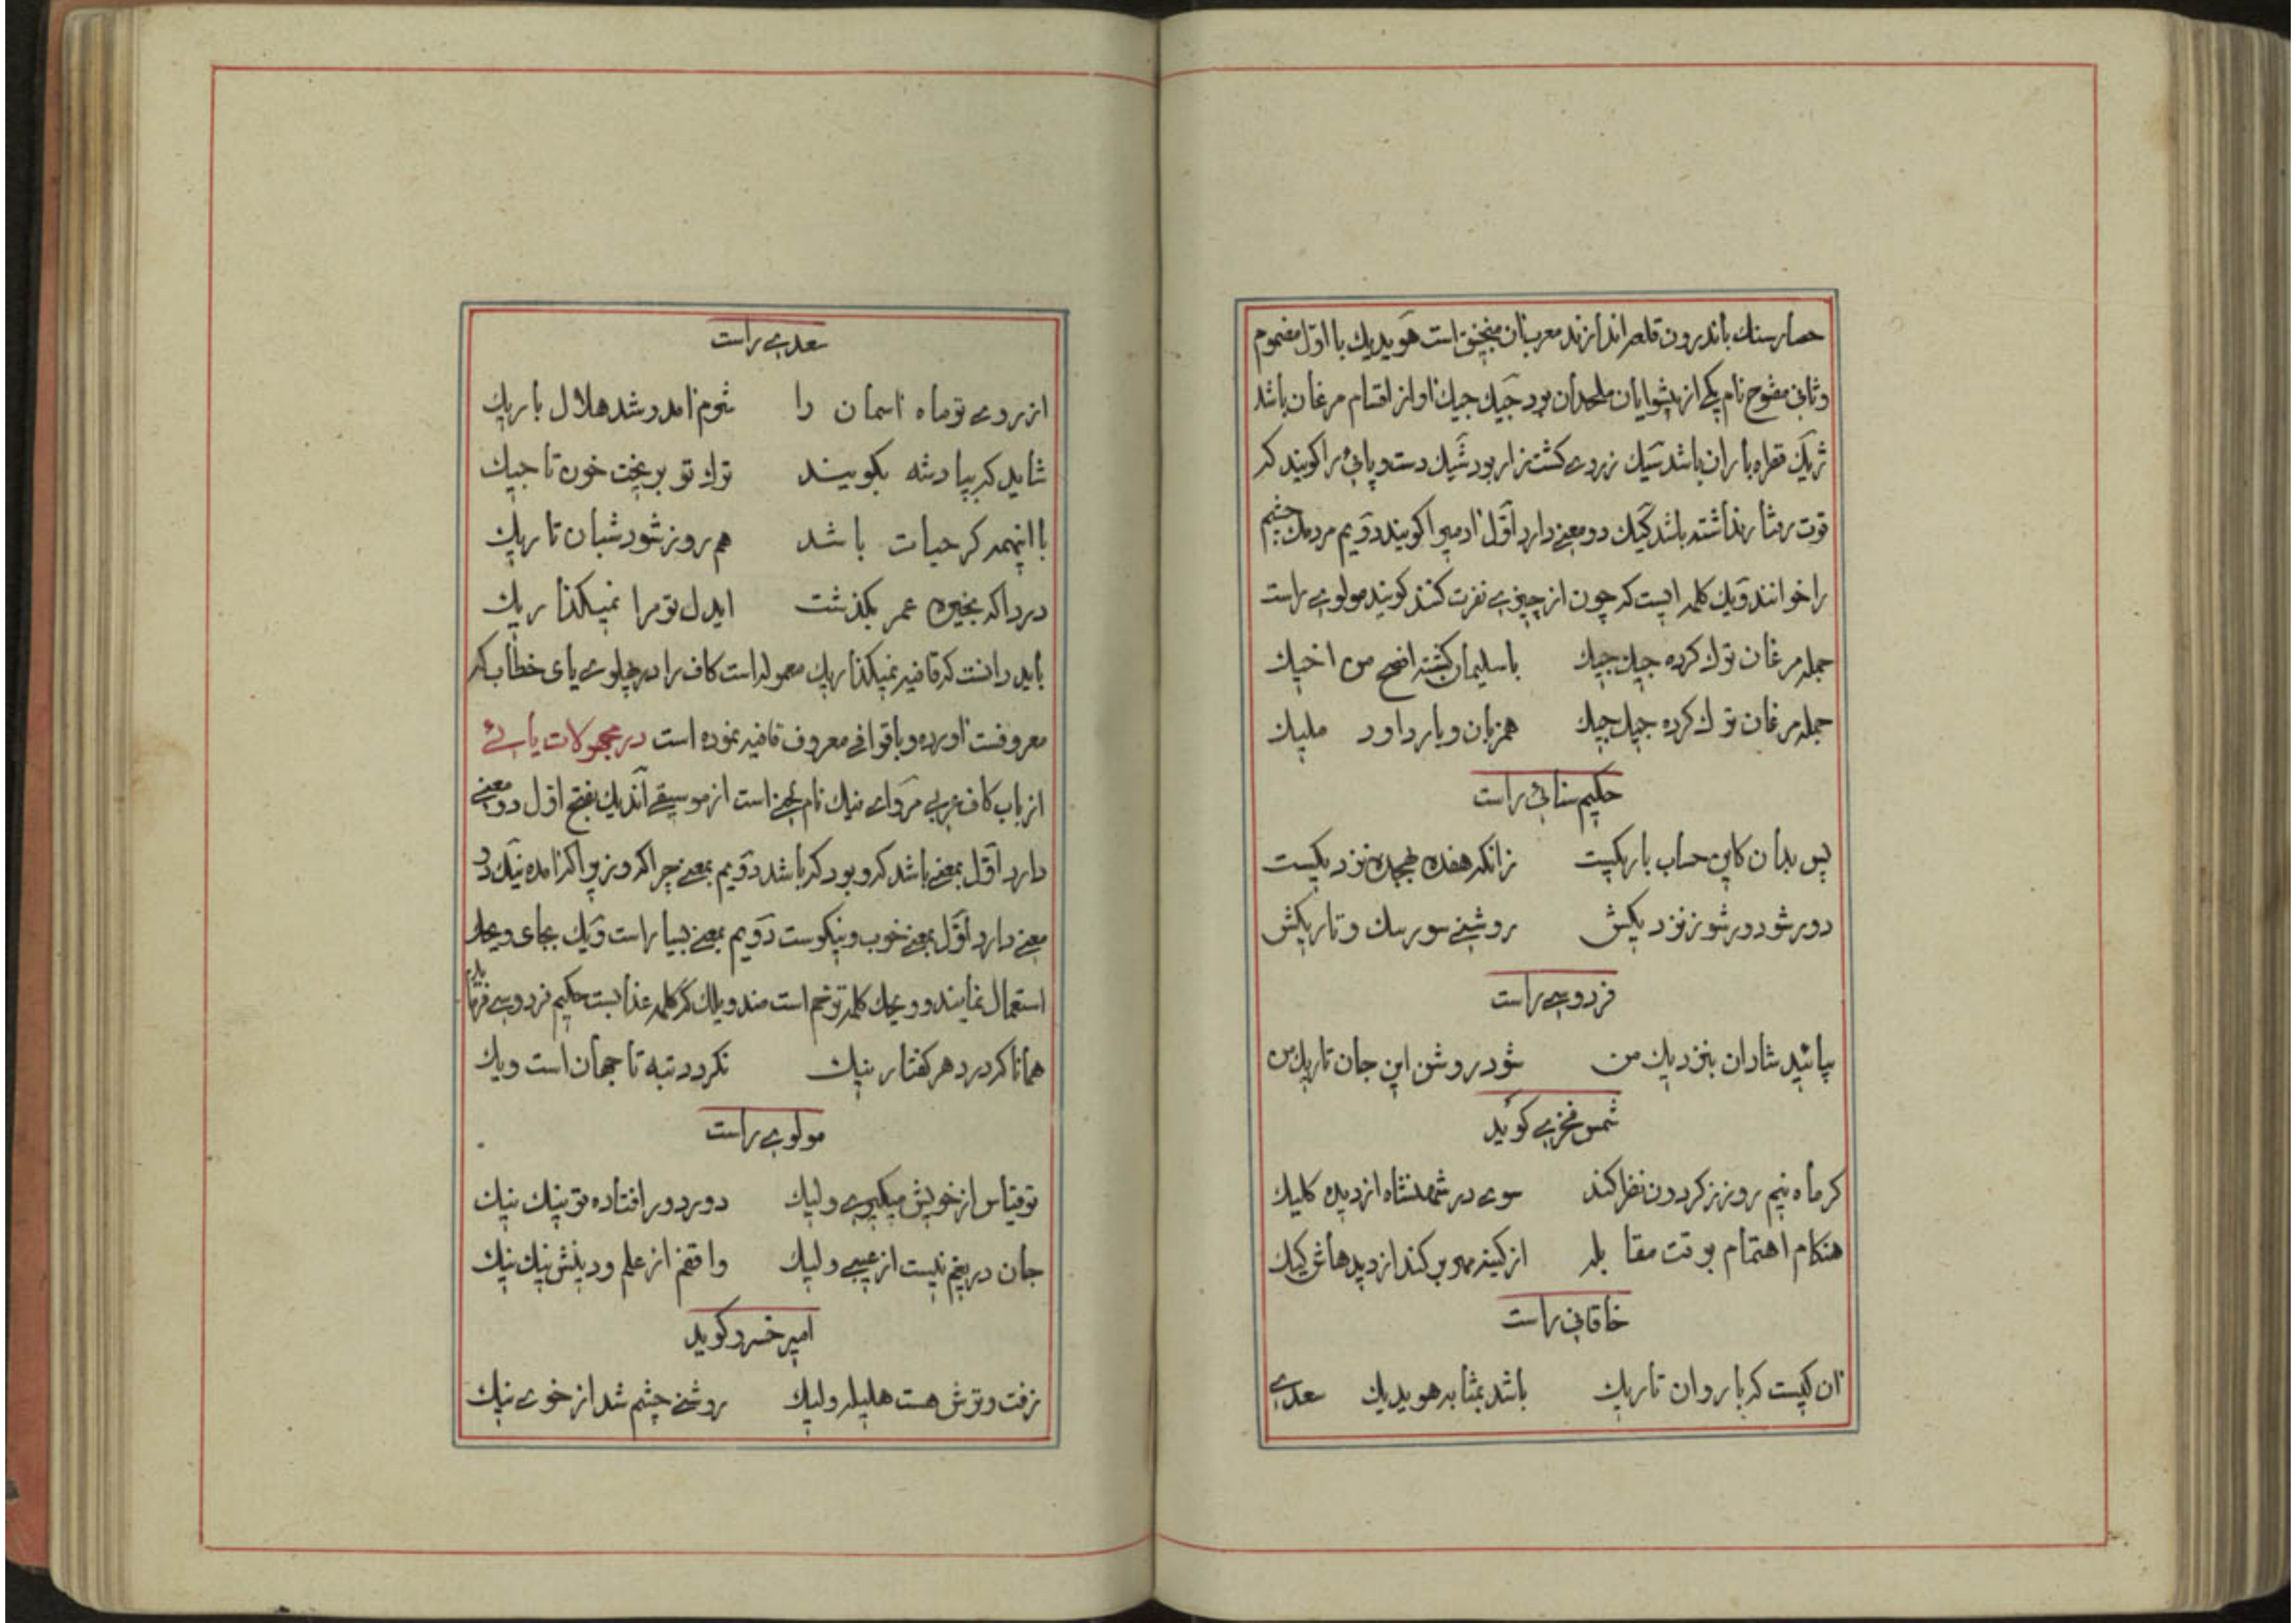 حصار سنك باندرون قلعه اندازند معرب ان منجنیق است هویدیك با اوّل مضموم
و ثانی مفتوح نام یکی از پیشوایان ملحدان بود جیك جیك اواز اقسام مرغان باشد
ژیك قطره باران باشد سیك زردے کشت زار بود شیك دست و پائی را کویند که
قوت رفتار نداشته باشد کیك دو معنے دارد اوّل ادمیرا کویند دویم مردمك چشم
را خوانند ویك کلمه ایست که چون از چیزے نفرت کنند کویند مولوے راست
جمله مرغان ترك کرده جیك جیك    با سلیمان کشته افصح من اخیك
جمله مرغان ترك کرده جیك جیك    همزبان و یار داود ملیك
حکیم سنائی راست
پس بدان کاین حساب باریکیست    زانکه هفده بهجده نزدیکیست
دور شو دور شو ز نزدیکیش    روشنے سورسك و تاریکیش
فردوسے راست
بیائید شادان بنزدیك من    شود روشن این جان تاریك من
شمس فخرے کوید
کر ماه نیم روز ز کردون نظر کند    سوے در شهنشاه از دیده کلیك
هنکام اهتمام بوقت مقا بله    از کینه مهر بر کند از دیدهاش کیك
خاقانی راست
ان کیست که با روان تاریك    باشد بمثابه هویدیك    سعدے
سعدے راست
از روے تو ماه اسمان را    شرم امد و شد هلال باریك
شاید که بپادشه بکویند    ترك تو بریخت خون تاجیك
با اینهمه کر حیات باشد    هم روز شود شبان تاریك
دردا که بخیره عمر بکذشت    ایدل تو مرا نمیکذاریك
باید دانست که قافیه نمیکذاریك معموله است کاف را در پهلوے یای خطاب که
معروفست اورده و با قوافے معروف قافیه نموده است در مجهولات یائے
از باب کاف عربے مرواے نیك نام لحنے است از موسیقے اندیك بفتح اوّل دو معنے
دارد اوّل بمعنے باشد که و بود که باشد دویم بمعنے چرا که و زیرا که امده نیك دو
معنے دارد اوّل بمعنے خوب و نیکوست دویم بمعنے بسیار است ویك بجای ویحك
استعمال نمایند و ویحك کلمه ترحم است ضد ویلك که کلمه عذابست حکیم فردوسے فرماید
همانا که در دهر کفتار نیك    نکردد تبه تا جهان است ویك
مولوے راست
تو قیاس از خویش میکیرے ولیك    دور دور افتاده تو نیك نیك
جان دریغم نیست از عیسے ولیك    واقفم از علم و دینش نیك نیك
امیر خسرو کوید
زفت و ترش هست هلیله ولیك    روشنے چشم شد از خوے نیك